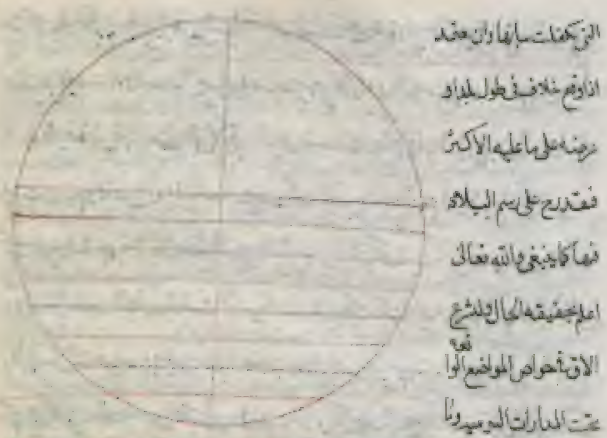 التى تكفلت ببيانها وان عقد
اذا وقع خلاف فى طول بلد او
عرضه على ما عليه الاكثر
فقد رح على رسم البلاد
فيها كما ينبغى والله تعالى
اعلم بحقيقه الحال ولنشرع
الان فى خواص المواضع الوا
قعه
تحت المدارات اليوميه ونا